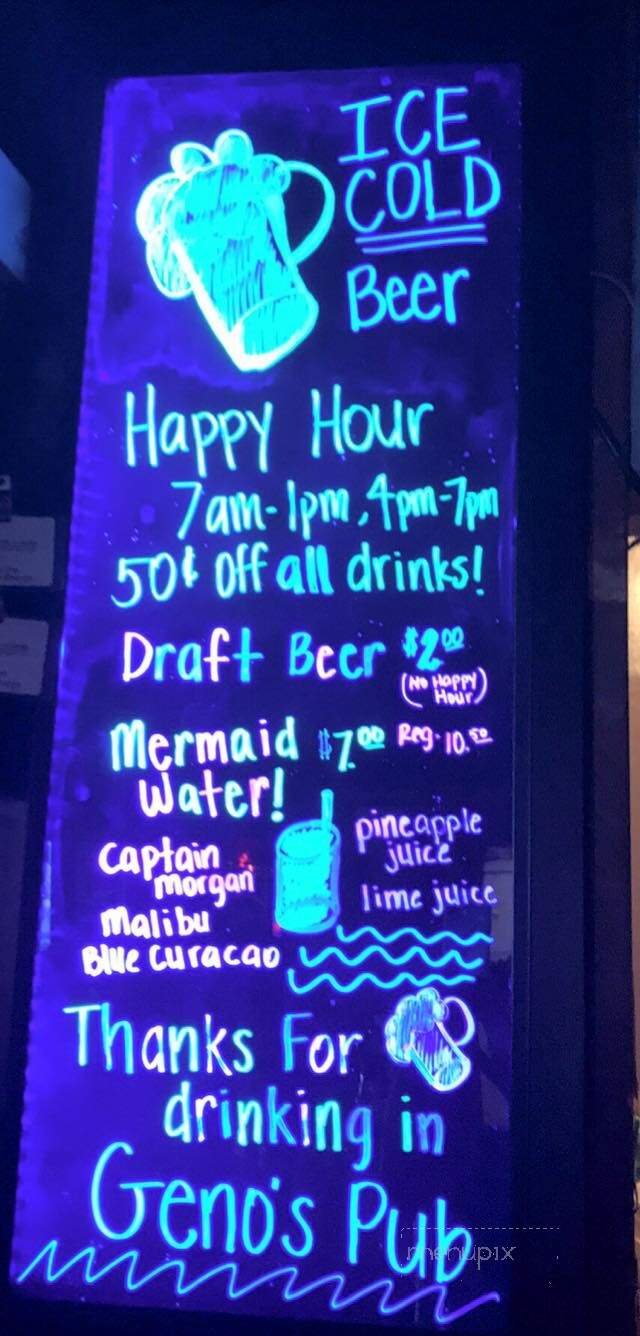 ICE
COLD
Beer
Happy Hour
7am-1pm, 4pm-7pm
50¢ Off all drinks!
Draft Beer $2.00
(No Happy
Hour)
Mermaid $7.00 Reg. 10.50
Water!
Captain
morgan
Malibu
Blue Curacao
pineapple
juice
lime juice
Thanks For
drinking in
Geno's Pub
menupix